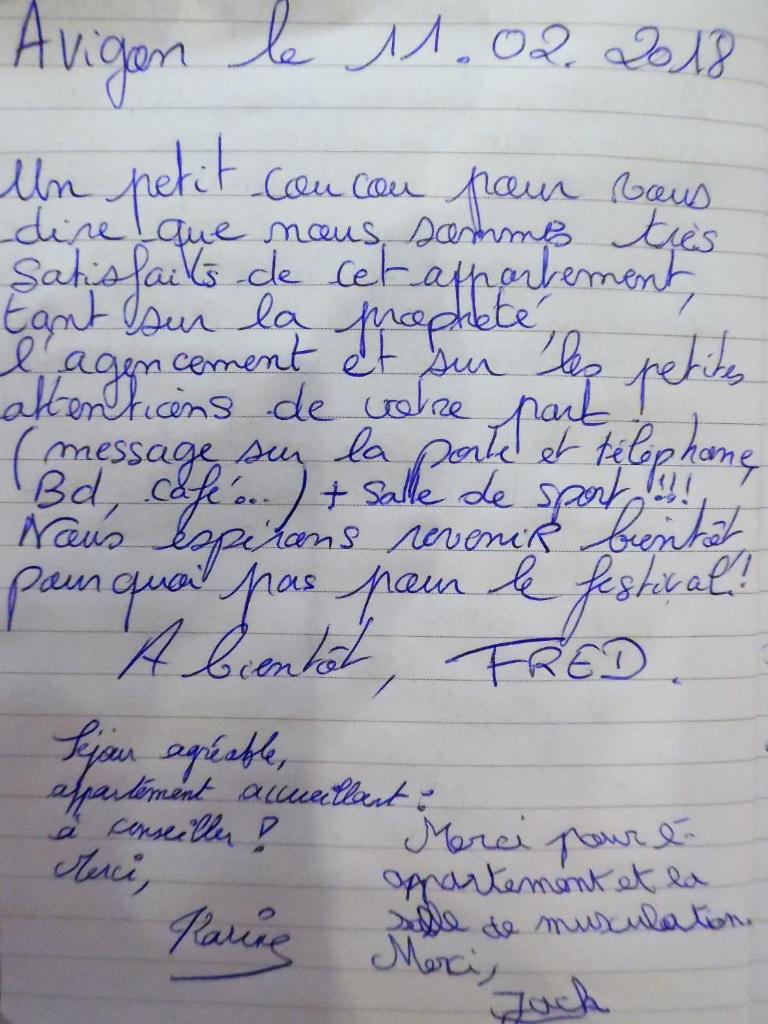 Avigon le 11.02.2018
Un petit coucou pour vous
dire que nous sommes très
satisfaits de cet appartement,
tant sur la propreté,
l'agencement et sur les petites
attentions de votre part
(message sur la porte et téléphone,
Bd, café...) + salle de sport !!!
Nous espérons revenir bientôt
pourquoi pas pour le festival !
A bientôt, FRED.
Séjour agréable,
appartement accueillant :
à conseiller !
Merci,
Karine
Merci pour l'
appartement et la
salle de musculation.
Merci,
Jack